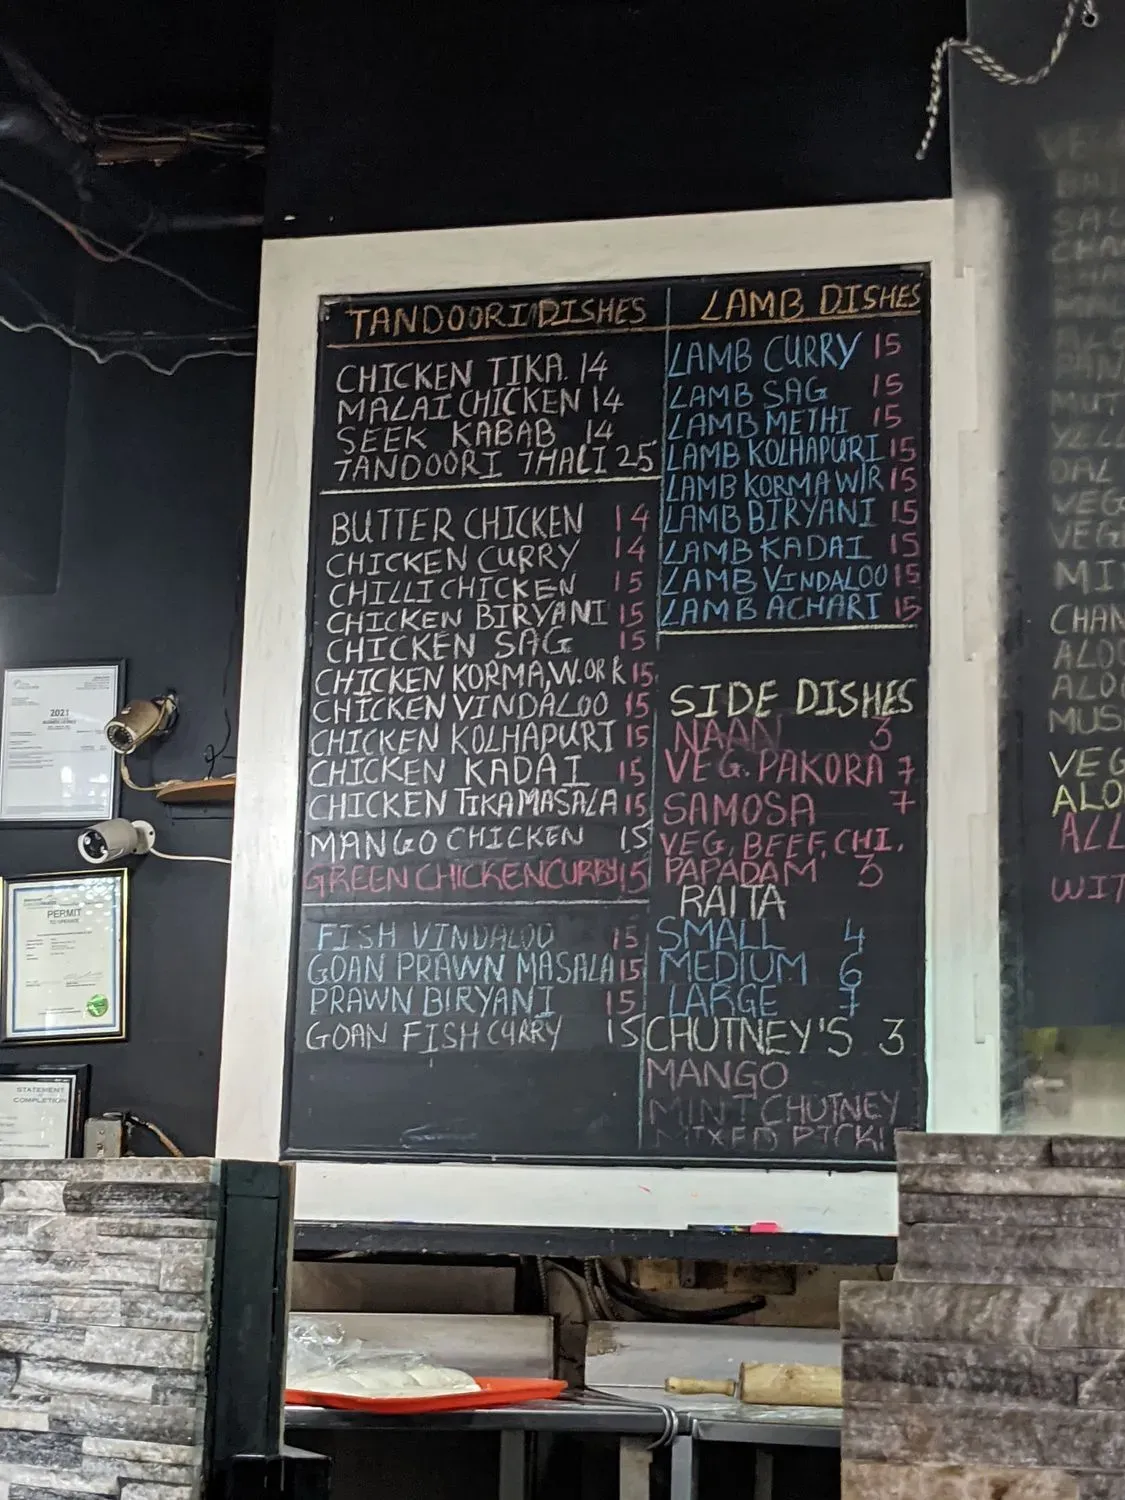 TANDOORI DISHES
CHICKEN TIKA. 14
MALAI CHICKEN 14
SEEK KABAB 14
TANDOORI THALI 25
BUTTER CHICKEN 14
CHICKEN CURRY 14
CHILLI CHICKEN 15
CHICKEN BIRYANI 15
CHICKEN SAG 15
CHICKEN KORMA, W.OR R 15
CHICKEN VINDALOO 15
CHICKEN KOLHAPURI 15
CHICKEN KADAI 15
CHICKEN TIKA MASALA 15
MANGO CHICKEN 15
GREEN CHICKEN CURRY 15
FISH VINDALOO 15
GOAN PRAWN MASALA 15
PRAWN BIRYANI 15
GOAN FISH CURRY 15
LAMB DISHES
LAMB CURRY 15
LAMB SAG 15
LAMB METHI 15
LAMB KOLHAPURI 15
LAMB KORMA W/R 15
LAMB BIRYANI 15
LAMB KADAI 15
LAMB VINDALOO 15
LAMB ACHARI 15
SIDE DISHES
NAAN 3
VEG. PAKORA 7
SAMOSA 7
VEG, BEEF, CHI.
PAPADAM 3
RAITA
SMALL 4
MEDIUM 6
LARGE 7
CHUTNEY'S 3
MANGO
MINT CHUTNEY
MIXED PICKL
2021
PERMIT
TO OPERATE
STATEMENT
COMPLETION
SAG
MUT
DAL
VEG
VEG
MI
CHAN
ALOO
ALO
MUS
VEG
ALO
ALL
WIT